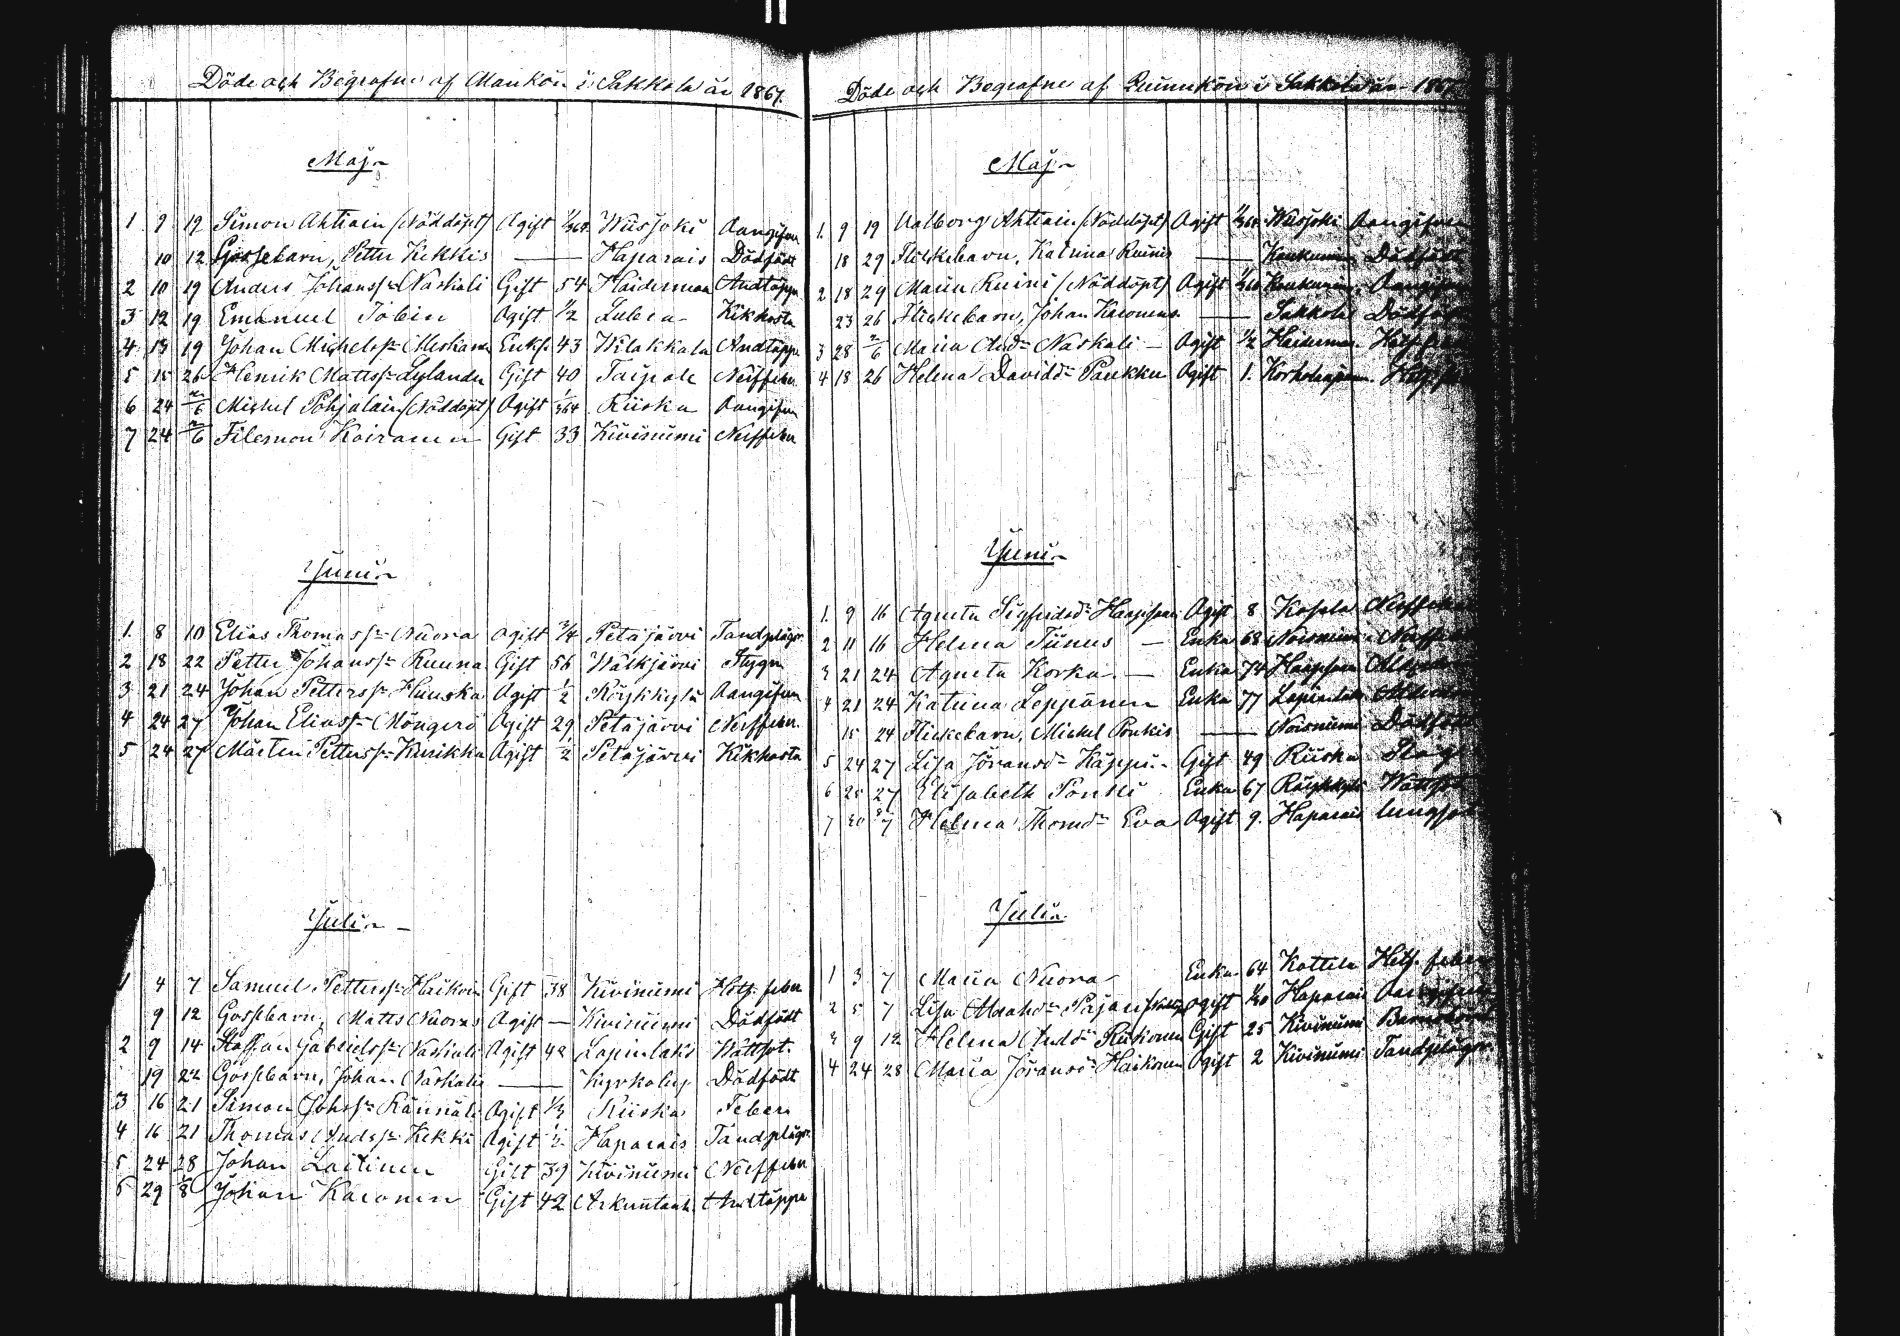 Döde och Begrafne af Mankön i Sakkola år 1867.
Maj
1 9 19 Simon Ahtiain (Nöddöpt) Ogift 1/364 Wiisjoki Oangifven
10 12 Gossebarn, Petter Kekkis — Haparais Dödfödt
2 10 19 Anders Johanss:n Naskali Gift 54 Haidermaa Andtäppa
3 12 19 Emanuel Tobin Ogift 1/2 Kikhosta
4 13 19 Johan Michelss:n Meskanen Enkl. 43 Wilakkala Andtäppa
5 15 26 Henrik Mattss:n Lylander Gift 40 Taipale Nerffeber
6 24 2/6 Michel Pohjalain (Nöddöpt) Ogift 1/364 Riiska Oangifven
7 24 2/6 Filemon Koiranen Gift 33 Kiviniemi Nerffeber
Juni
1 8 10 Elias Thomass:n Nuora Ogift 3/4 Petäjärvi Tandplågor
2 18 22 Petter Johanss:n Ruuna Gift 56 Wälkjärvi Stygn
3 21 24 Johan Petterss:n Huuska Ogift 1/2 Röykkylä Oangifven
4 24 27 Johan Eliass:n Möngerö Ogift 29 Petäjärvi Nerffeber
5 24 27 Mårten Petterss:n Kurikka Ogift 1/2 Petäjärvi Kikhosta
Juli
1 4 7 Samuel Petterss:n Haikonen Gift 38 Kiviniemi Hets. feber
9 12 Gossebarn, Matts Nuoras Ogift — Kiviniemi Dödfödt
2 9 14 Staffan Gabrielss:n Naskali Ogift 42 Lapinlaks Wattsot.
19 22 Gossebarn, Johan Naskalis — Kyrkoby Dödfödt
3 16 21 Simon Johss:n Rännäli Ogift 1/3 Riiska Feber
4 16 21 Thomas Andss:n Kekki Ogift 1/2 Haparais Tandplågor
5 24 28 Johan Laitinen Gift 39 Kiviniemi Nerffeber
6 29 1/8 Johan Karonen Gift 42 Arkuntanh. Andtäppa
Döde och Begrafne af Quinnkön i Sakkola år 1867.
Maj
1. 9 19 Walborg Ahtiain (Nöddöpt) Ogift 1/364 Wiisjoki Oangifven
18 29 Flickebarn, Katrina Ruinis — Kaukunen Dödfödt
2 18 29 Maria Ruini (Nöddöpt) Ogift Kaukunen Oangifven
23 26 Flickebarn, Johan Karonens — Sakkola Dödfödt
3 28 2/6 Maria And:dr Naskali — Ogift 1/2 Haiderma. Hets. feber
4 18 26 Helena Davidd:r Paukku Ogift 1. Hets. feber
Juni
1. 9 16 Agneta Sigfridsd:r Ogift 8 Kasela Nerffeber
2 11 16 Helena Tiinus — Enka 68 Noisniemi Nerffeber
3 21 24 Agneta Korka — Enka 74
4 21 24 Katrina Leppänen Enka 77 Lapinlaks
15 24 Flickebarn, Michel Ponkis — Noisniemi Dödfödt
5 24 27 Lisa Jöransd:r Käppi Gift 49 Riiska
6 25 27 Elisabeth Pontti Enka 67 Röykkylä Wattsot
7 30 3/7 Helena Thomd:r Eva Ogift 9. Haparais lungsot
Juli
1 3 7 Maria Nuora Enka 64 Kottela Hets. feber
2 5 7 Lisa Abrahd:r Pajari Ogift 1/30 Haparais Oangifven
3 9 12 Helena And:dr Riikonen Gift 25 Kiviniemi Barnsbörd
4 24 28 Maria Jöransd:r Haikonen Ogift 2 Kiviniemi Tandplågor